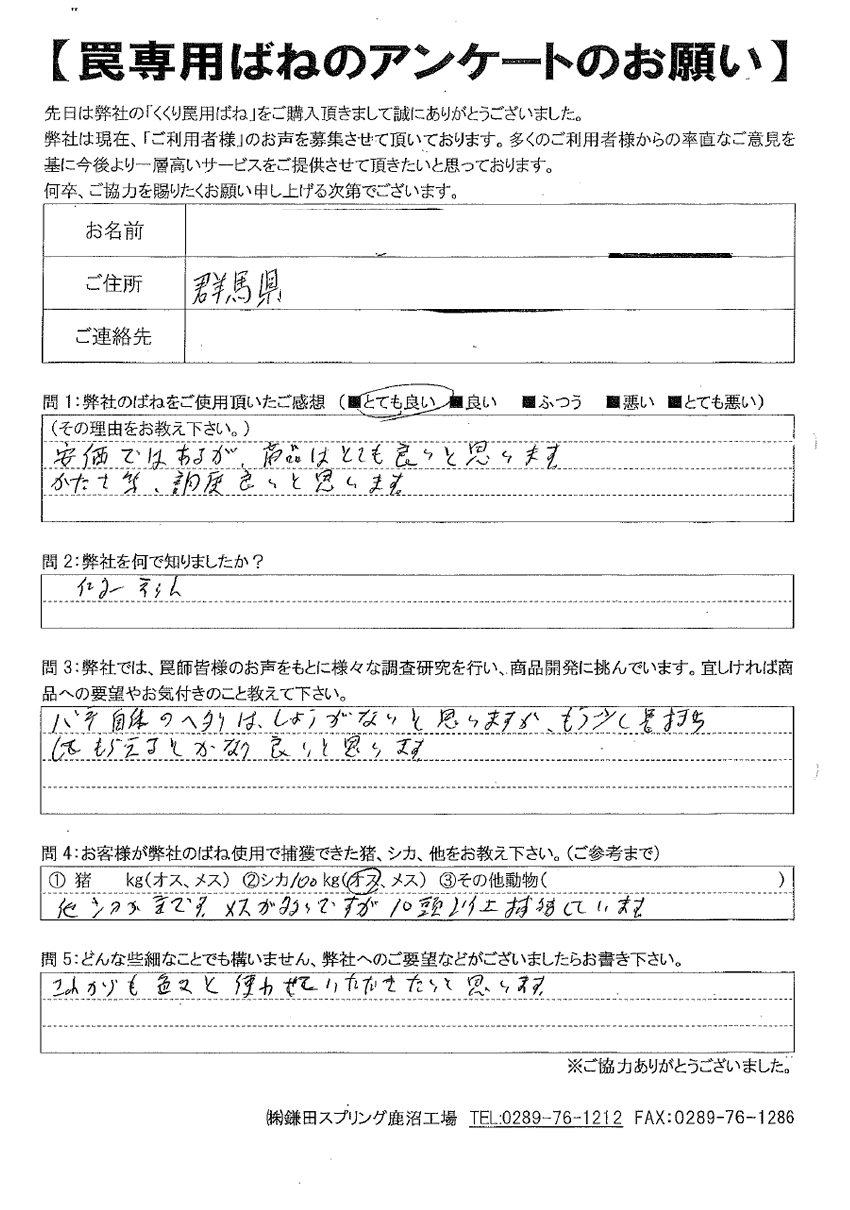 【罠専用ばねのアンケートのお願い】
先日は弊社の「くくり罠用ばね」をご購入頂きまして誠にありがとうございました。
弊社は現在、「ご利用者様」のお声を募集させて頂いております。多くのご利用者様からの率直なご意見を
基に今後より一層高いサービスをご提供させて頂きたいと思っております。
何卒、ご協力を賜りたくお願い申し上げる次第でございます。
お名前
ご住所 群馬県
ご連絡先
問1:弊社のばねをご使用頂いたご感想 (■とても良い ■良い ■ふつう ■悪い ■とても悪い)
(その理由をお教え下さい。)
安価ではあるが、商品はとても良いと思います
かたさ等、調度良いと思います。
問2:弊社を何で知りましたか?
問3:弊社では、罠師皆様のお声をもとに様々な調査研究を行い、商品開発に挑んでいます。宜しければ商
品への要望やお気付きのこと教えて下さい。
バネ自体のヘタリは、しょうがないと思いますが、もう少し長持ち
してもらえるとかなり良いと思います
問4:お客様が弊社のばね使用で捕獲できた猪、シカ、他をお教え下さい。(ご参考まで)
① 猪 kg(オス、メス) ②シカ100kg(オス、メス) ③その他動物( )
他シカ メスが多いですが10頭以上捕獲しています
問5:どんな些細なことでも構いません、弊社へのご要望などがございましたらお書き下さい。
これからも色々と使わせていただきたいと思います
※ご協力ありがとうございました。
㈱鎌田スプリング鹿沼工場 TEL:0289-76-1212 FAX:0289-76-1286